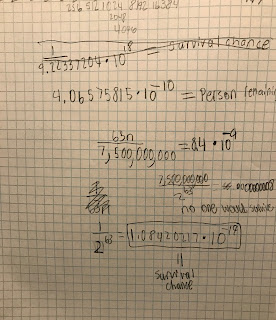 256 512 1024 8192 16384
2048
4096
1
9.22337204 · 10^18 = survival chance
4.06575815 · 10^-10 = person remaining
63n
7,500,000,000 = 8.4 · 10^-9
7,500,000,000
2^63
no one would survive
1
2^63 = 1.08420217 · 10^-19
=
survival
chance